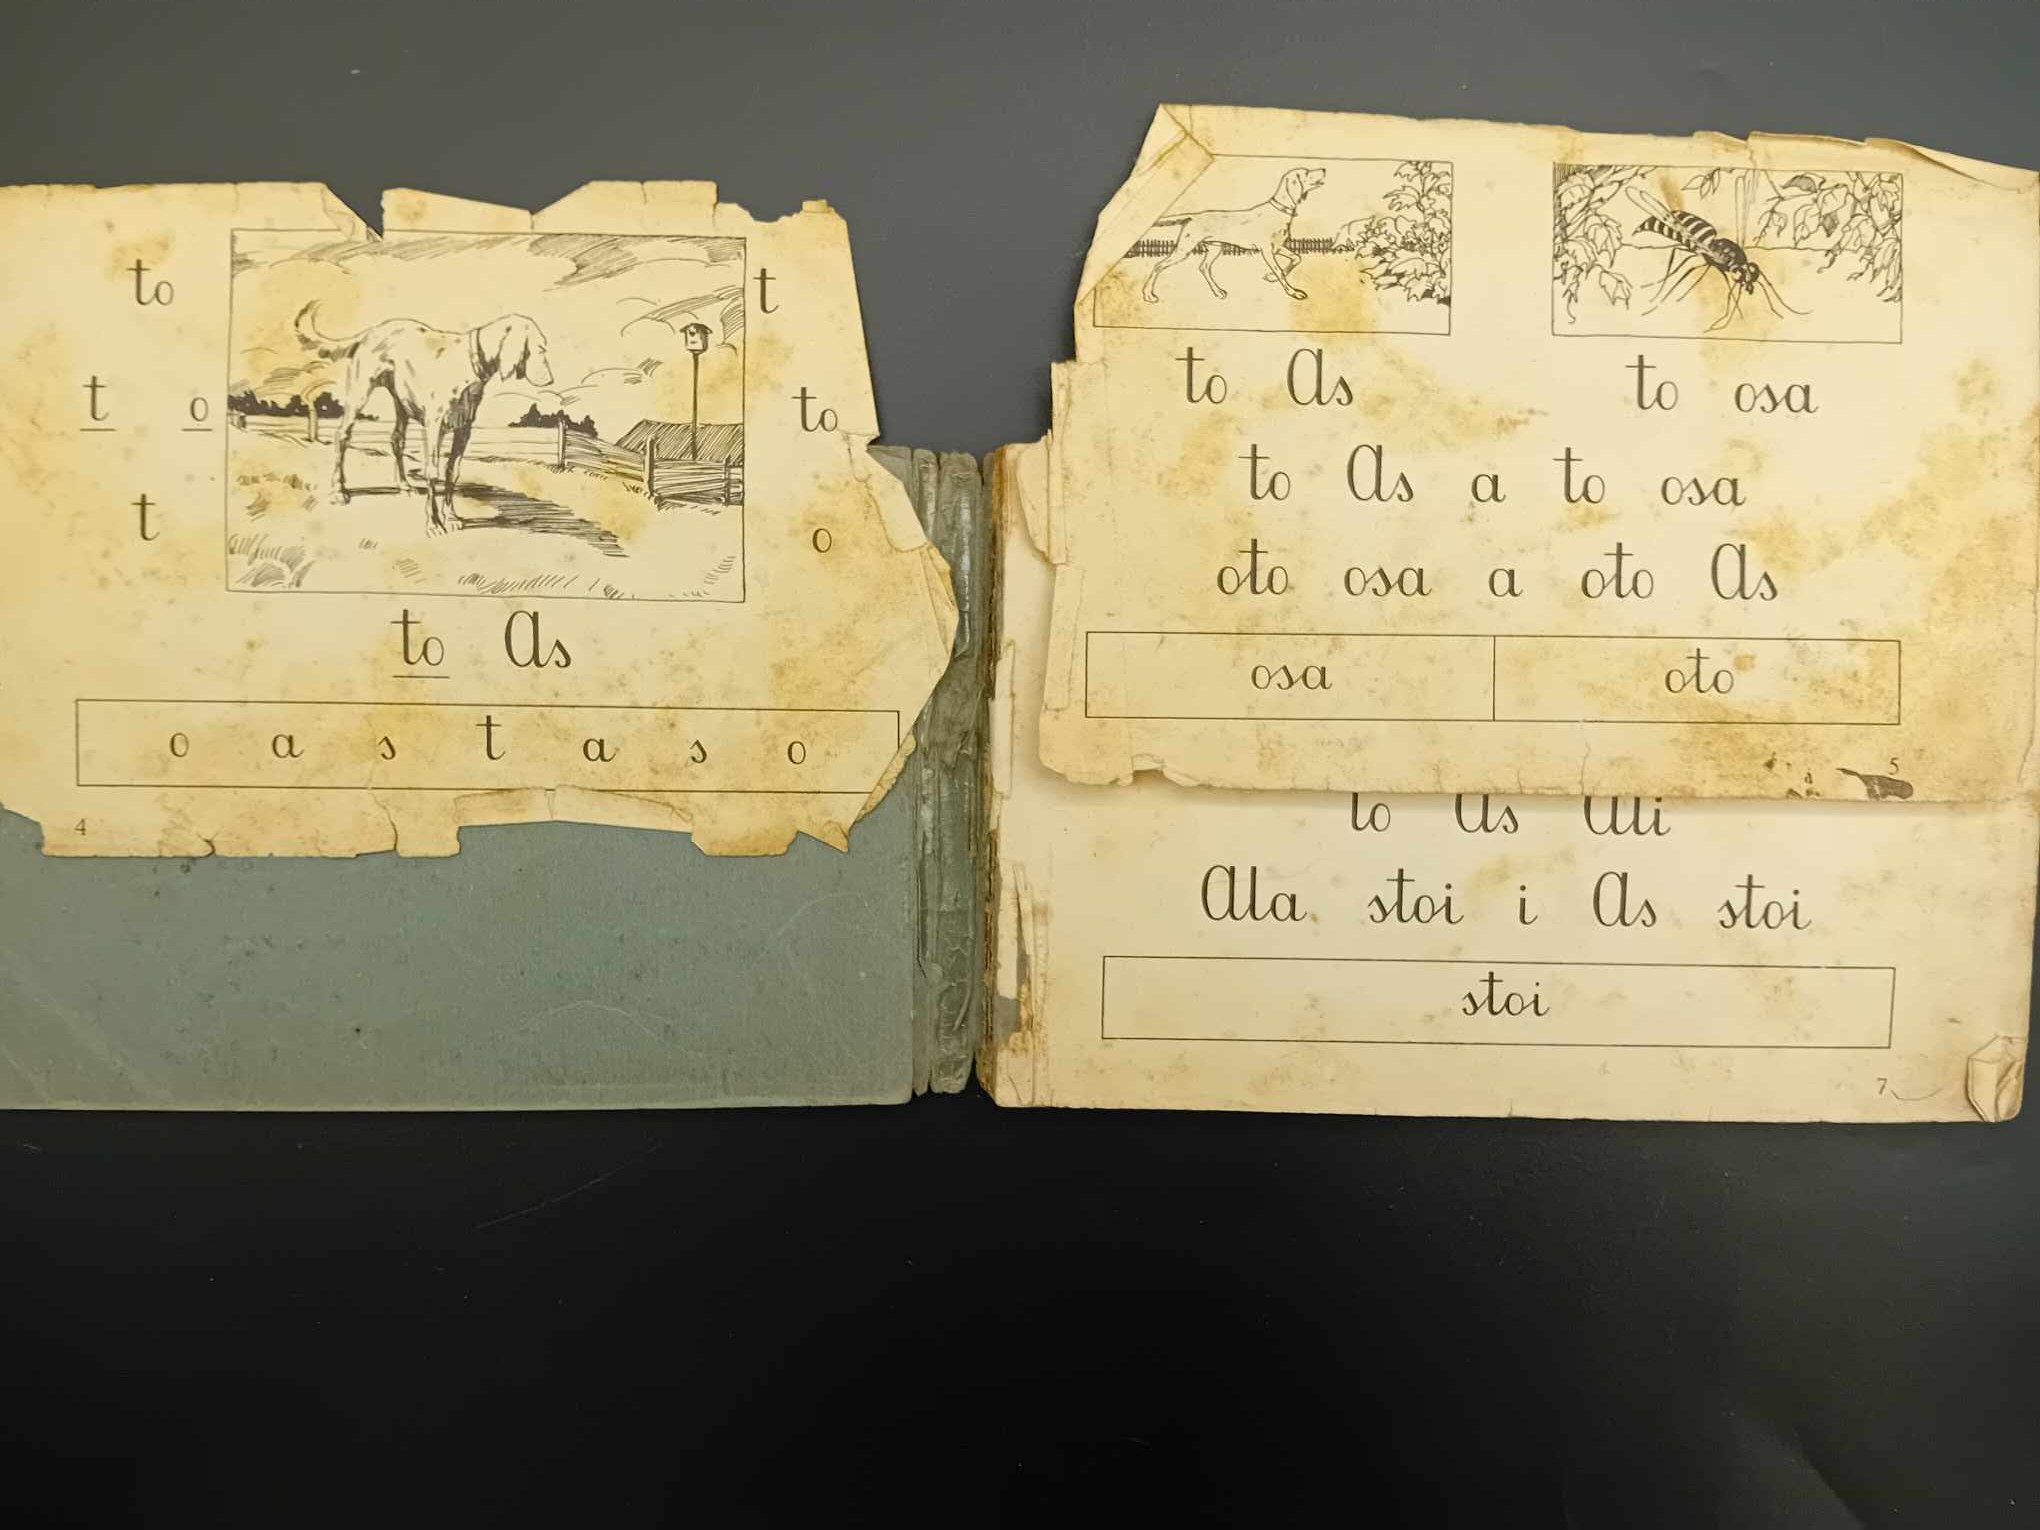 to t
t o to
t o
to As
o a s t a s o
4
to As to osa
to As a to osa
oto osa a oto As
osa oto
5
to As Ali
Ala stoi i As stoi
stoi
7